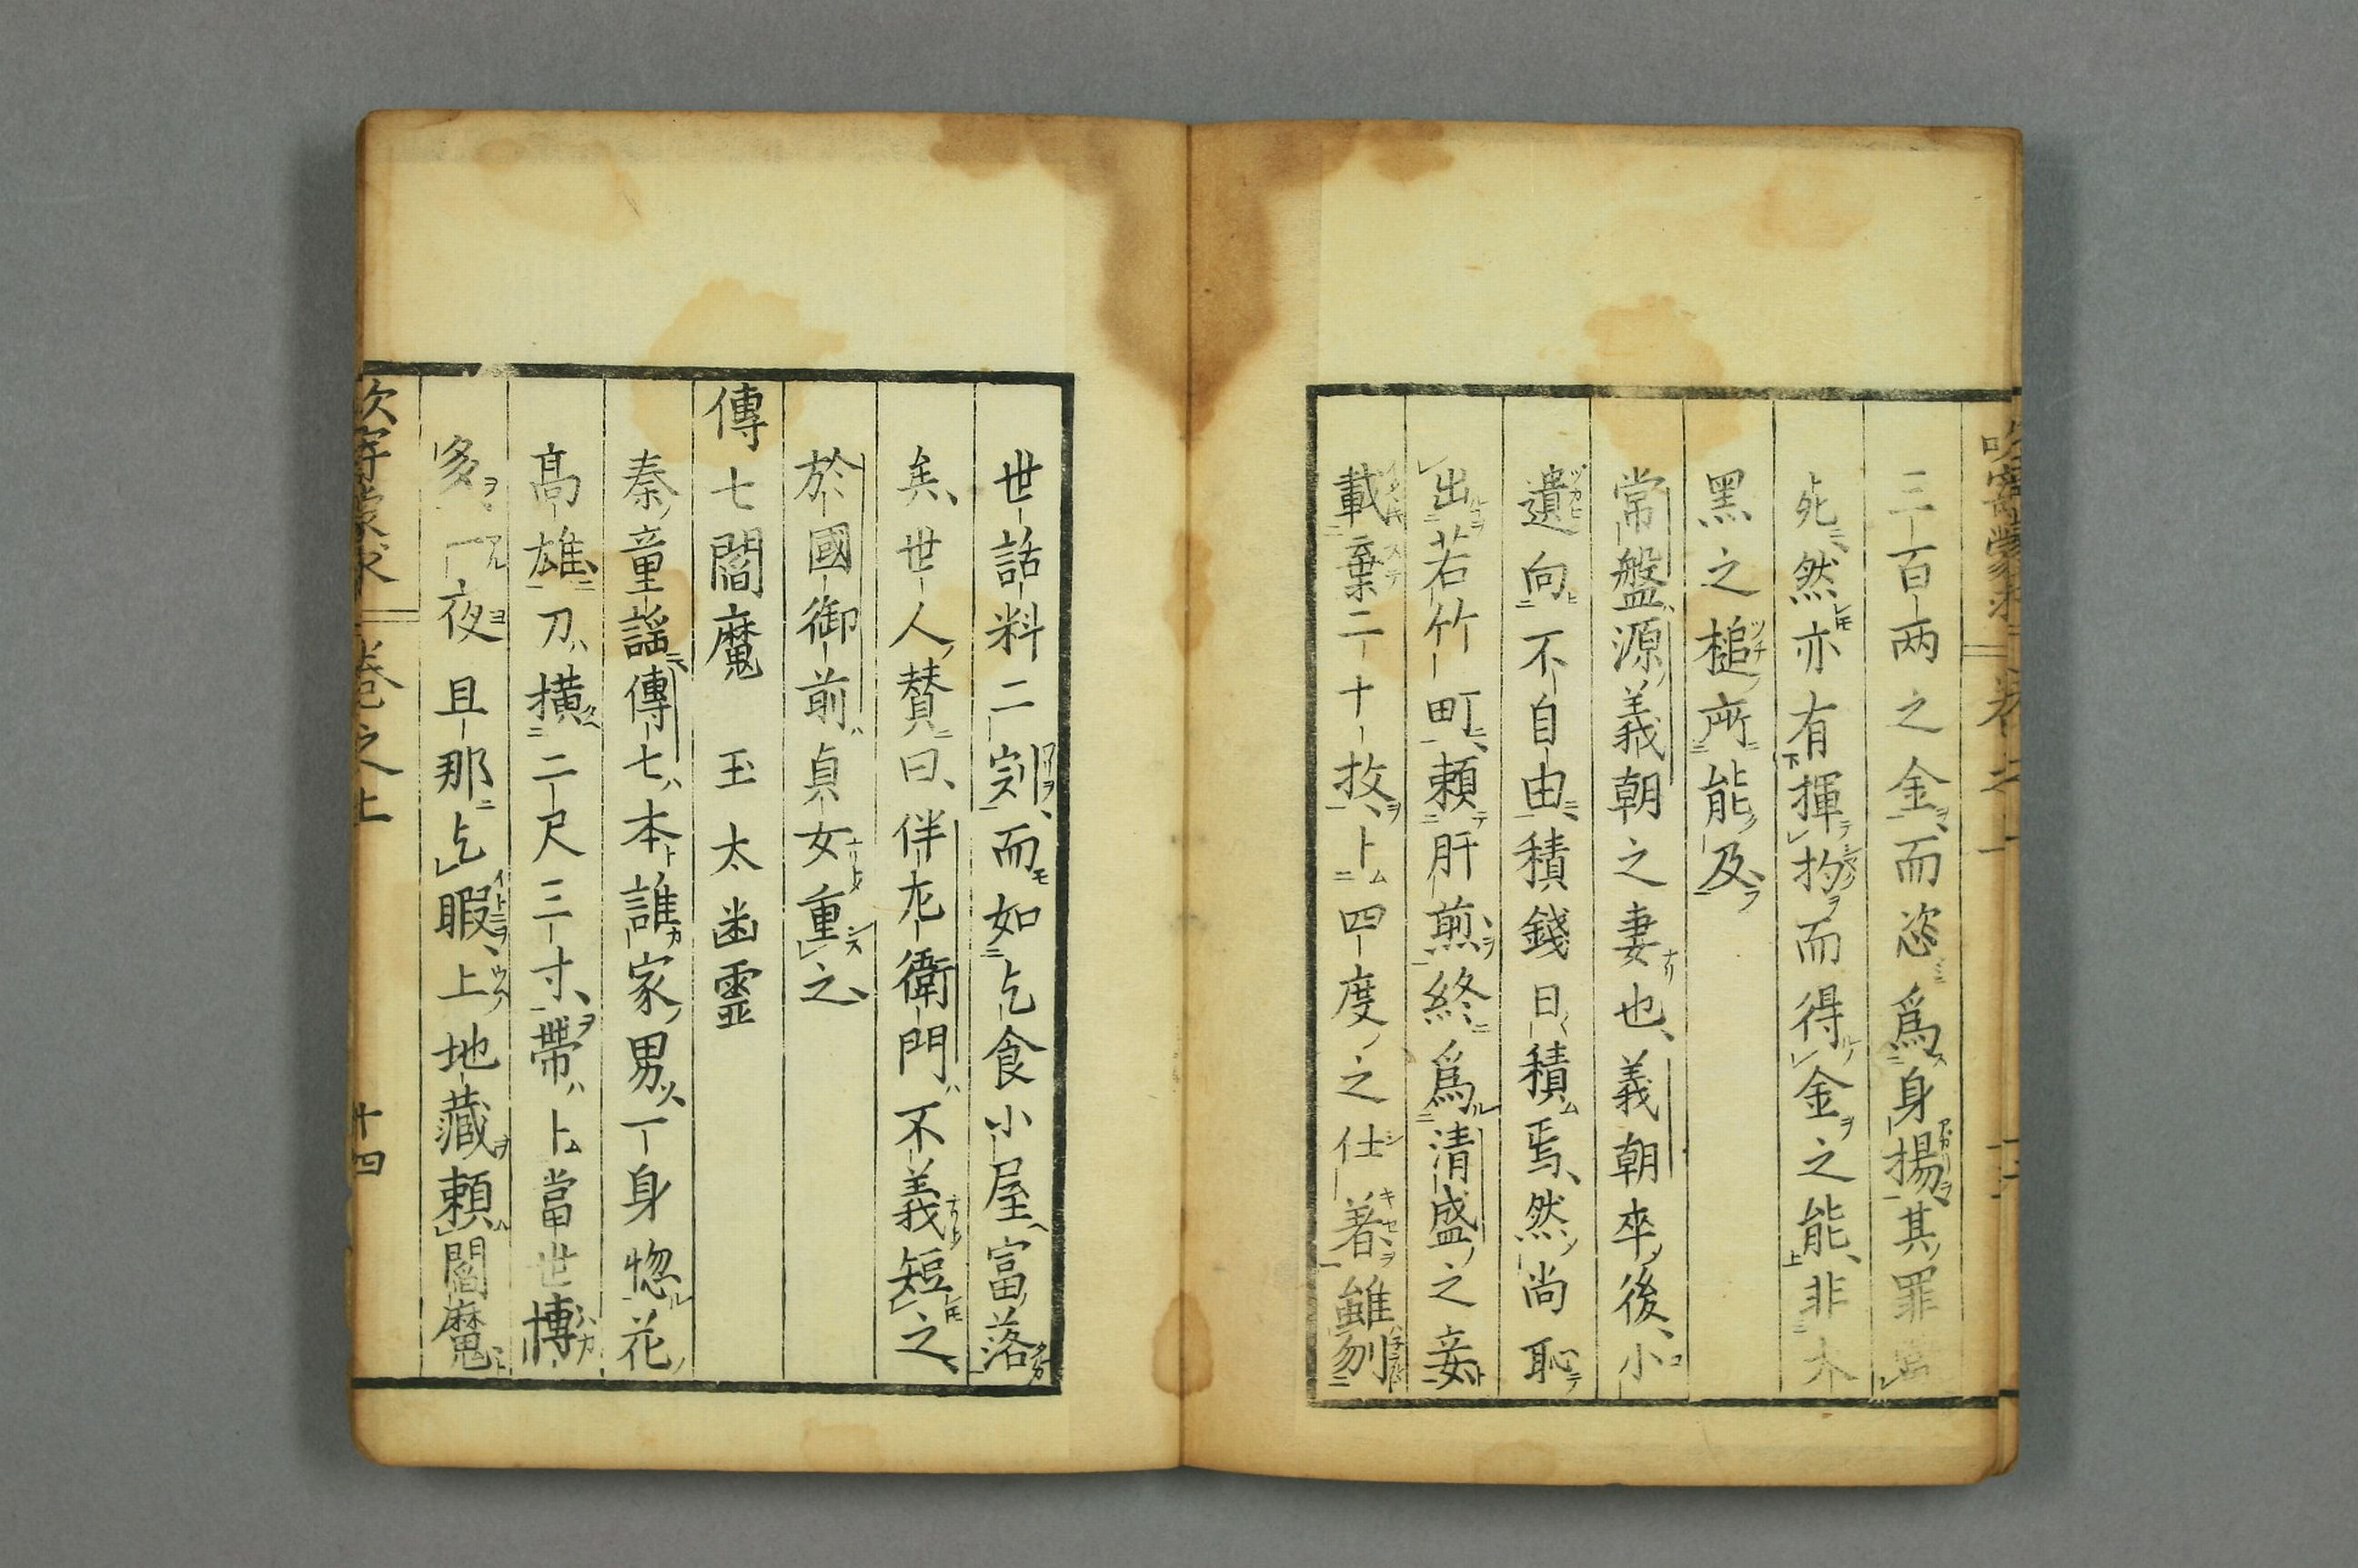 三百両之金而恣為身揚其罪當
死然亦有揮扚而得金之能非木
黒之槌所能及
常盤源義朝之妻也義朝卒後小
遺向不自由積錢日積焉然尚恥
出若竹町頼肝煎終為清盛之妾
載棄二十枚卜四度之仕著雖刎
世話料二割而如乞食小屋冨落
矣世人賛曰伴左衛門不義短之
於國御前貞女重之
傳七閻魔 玉太幽霊
秦童謡傳七本誰家男一身惚花
髙雄刀横二尺三寸帶卜當世博
多一夜且那乞暇上地藏頼閻魔
卷之上
十四